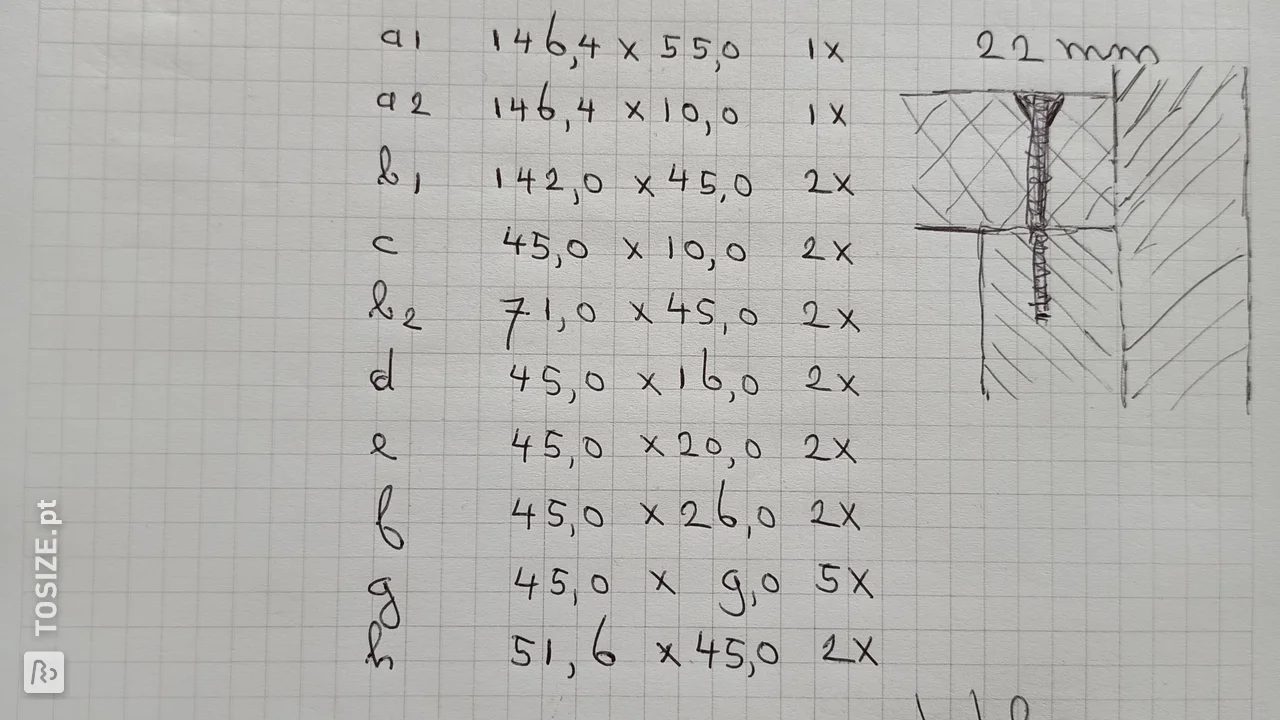 a1 146,4 x 55,0 1x
22 mm
a2 146,4 x 10,0 1x
b1 142,0 x 45,0 2x
c 45,0 x 10,0 2x
b2 71,0 x 45,0 2x
d 45,0 x 16,0 2x
e 45,0 x 20,0 2x
f 45,0 x 26,0 2x
g 45,0 x 9,0 5x
h 51,6 x 45,0 2x
TOSIZE.pt